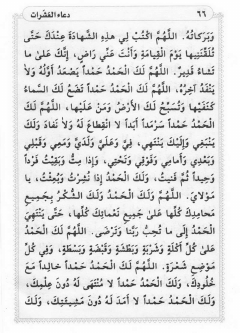 ٦٦
دعاء العشرات
وَبَرَكَاتُهُ. اللَّهُمَّ اكْتُبْ لِي هٰذِهِ الشَّهَادَةَ عِنْدَكَ حَتَّى
تُلَقِّنَنِيهَا يَوْمَ الْقِيَامَةِ وَأَنْتَ عَنِّي رَاضٍ، إِنَّكَ عَلَىٰ مَا
تَشَاءُ قَدِيرٌ. اللَّهُمَّ لَكَ الْحَمْدُ حَمْداً يَصْعَدُ أَوَّلُهُ وَلَا
يَنْفَدُ آخِرُهُ، اللَّهُمَّ لَكَ الْحَمْدُ حَمْداً تَضَعُ لَكَ السَّمَاءُ
كَنَفَيْهَا وَتُسَبِّحُ لَكَ الْأَرْضُ وَمَنْ عَلَيْهَا، اللَّهُمَّ لَكَ
الْحَمْدُ حَمْداً سَرْمَداً أَبَداً لَا انْقِطَاعَ لَهُ وَلَا نَفَادَ وَلَكَ
يَنْبَغِي وَإِلَيْكَ يَنْتَهِي، فِيَّ وَعَلَيَّ وَلَدَيَّ وَمَعِي وَقَبْلِي
وَبَعْدِي وَأَمَامِي وَفَوْقِي وَتَحْتِي، وَإِذَا مِتُّ وَبَقِيتُ فَرْداً
وَحِيداً ثُمَّ فَنِيتُ، وَلَكَ الْحَمْدُ إِذَا نُشِرْتُ وَبُعِثْتُ، يَا
مَوْلَايَ. اللَّهُمَّ وَلَكَ الْحَمْدُ وَلَكَ الشُّكْرُ بِجَمِيعِ
مَحَامِدِكَ كُلِّهَا عَلَىٰ جَمِيعِ نَعْمَائِكَ كُلِّهَا، حَتَّى يَنْتَهِيَ
الْحَمْدُ إِلَىٰ مَا تُحِبُّ رَبَّنَا وَتَرْضَىٰ. اللَّهُمَّ لَكَ الْحَمْدُ
عَلَىٰ كُلِّ أَكْلَةٍ وَشَرْبَةٍ وَبَطْشَةٍ وَقَبْضَةٍ وَبَسْطَةٍ، وَفِي كُلِّ
مَوْضِعِ شَعْرَةٍ. اللَّهُمَّ لَكَ الْحَمْدُ حَمْداً خَالِداً مَعَ
خُلُودِكَ، وَلَكَ الْحَمْدُ حَمْداً لَا مُنْتَهَىٰ لَهُ دُونَ عِلْمِكَ،
وَلَكَ الْحَمْدُ حَمْداً لَا أَمَدَ لَهُ دُونَ مَشِيئَتِكَ، وَلَكَ